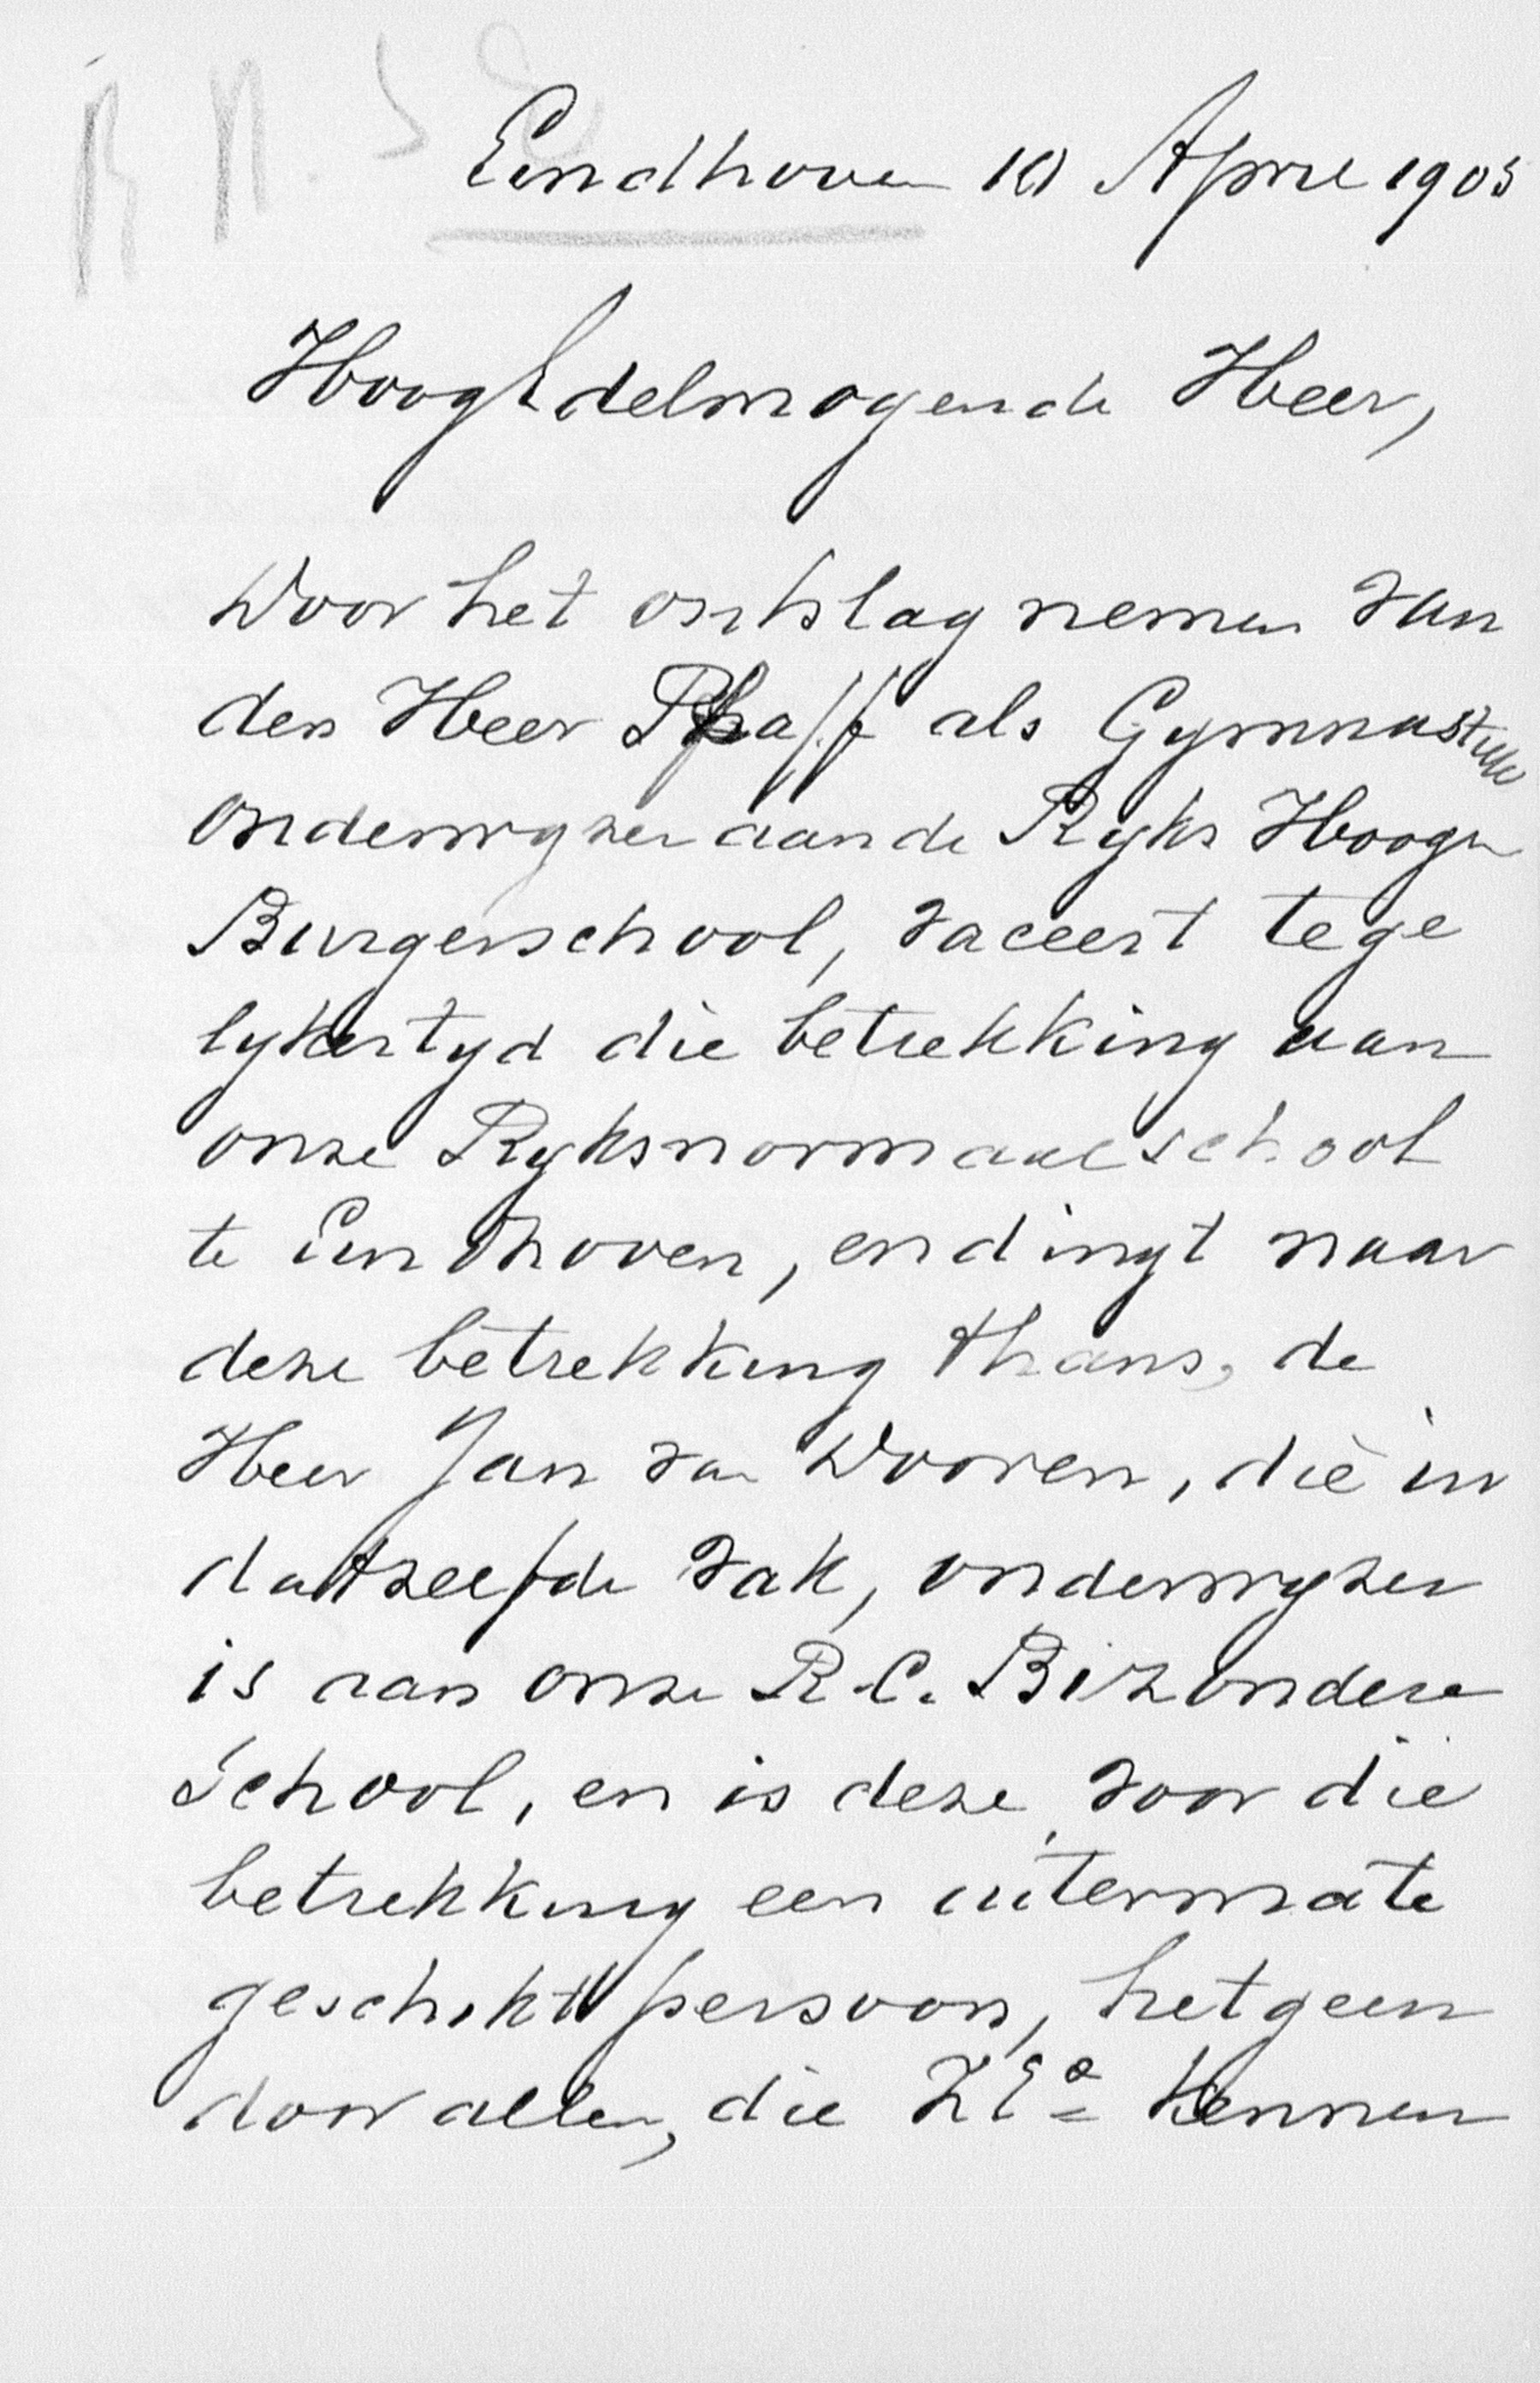 Eindhoven 10 April 1905
HoogEdelmogende Heer,
Door het ontslag nemen van
den Heer Pfaff als Gymnastiek
onderwyzer aan de Ryks Hooger
Burgerschool, vaceert tege
lykertyd die betrekking aan
onze Ryksnormaalschool
te Eindhoven, en dingt naar
deze betrekking thans, de
Heer Jan van Dooren, die in
datzelfde vak, onderwyzer
is aan onze R.C. Bizondere
School, en is deze voor die
betrekking een uitermate
geschikt persoon, hetgeen
door allen, die ZEd kennen